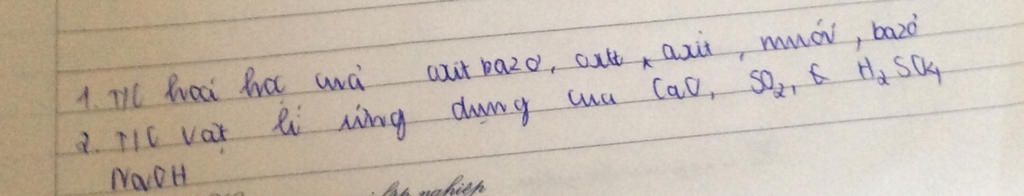 1. T/C hoá học của oxit bazơ, oxit axit, muối, bazơ
2. T/C vật lí ứng dụng của CaO, SO2, H2SO4,
NaOH
nghiệp